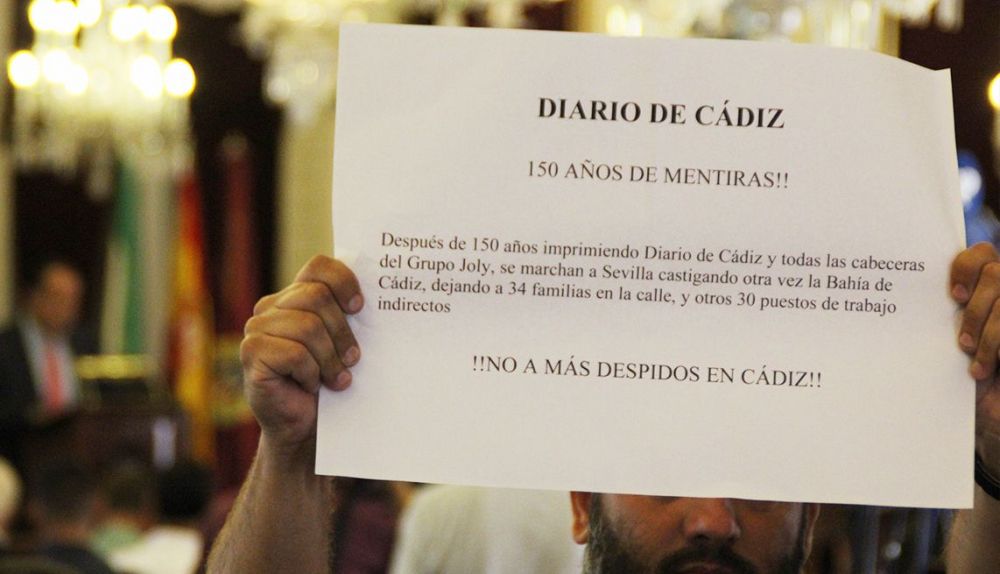 DIARIO DE CÁDIZ
150 AÑOS DE MENTIRAS!!
Después de 150 años imprimiendo Diario de Cádiz y todas las cabeceras
del Grupo Joly, se marchan a Sevilla castigando otra vez la Bahía de
Cádiz, dejando a 34 familias en la calle, y otros 30 puestos de trabajo
indirectos
!!NO A MÁS DESPIDOS EN CÁDIZ!!